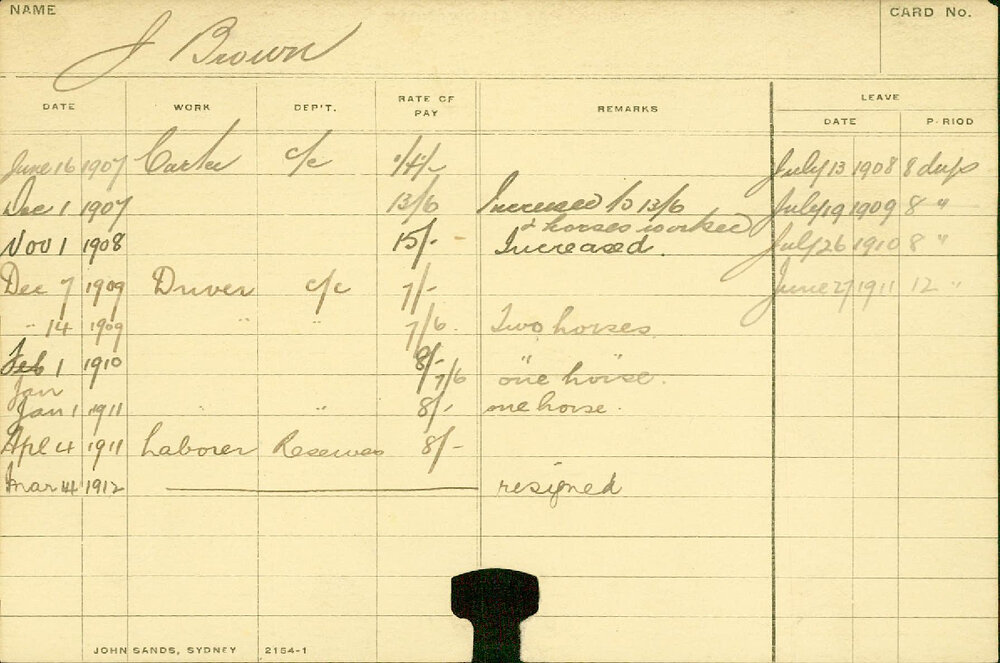 NAME
CARD No.
J Brown
DATE WORK DEP'T. RATE OF PAY REMARKS LEAVE
DATE PERIOD
June 16 1907 Carter c/c 14/- July 13 1908 8 days
Dec 1 1907 13/6 Increased to 13/6 July 19 1909 8 "
& horses worked
Nov 1 1908 15/- Increased. July 26 1910 8 "
Dec 7 1909 Driver c/c 7/- June 27 1911 12 "
" 14 1909 " " 7/6. Two horses
Feb 1 1910 8/- " "
Jan 7/6 one horse.
Jan 1 1911 " " 8/- one horse.
Apl 4 1911 Laborer Reserves 8/-
Mar 14 1912 resigned
JOHN SANDS, SYDNEY 2154-1